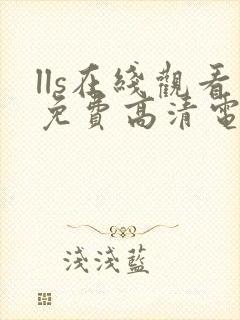 lls在綫觀看
免費高清電
淺淺藍